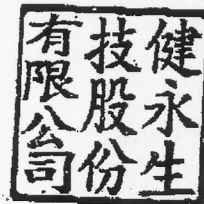 健永生
技股份
有限公司